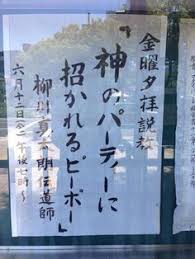 金曜夕拝説教
「神のパーティーに
招かれるピーポー」
柳川真太朗伝道師
六月十二日(金)午後七時〜